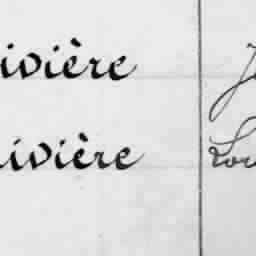 ivière
ivière Lou